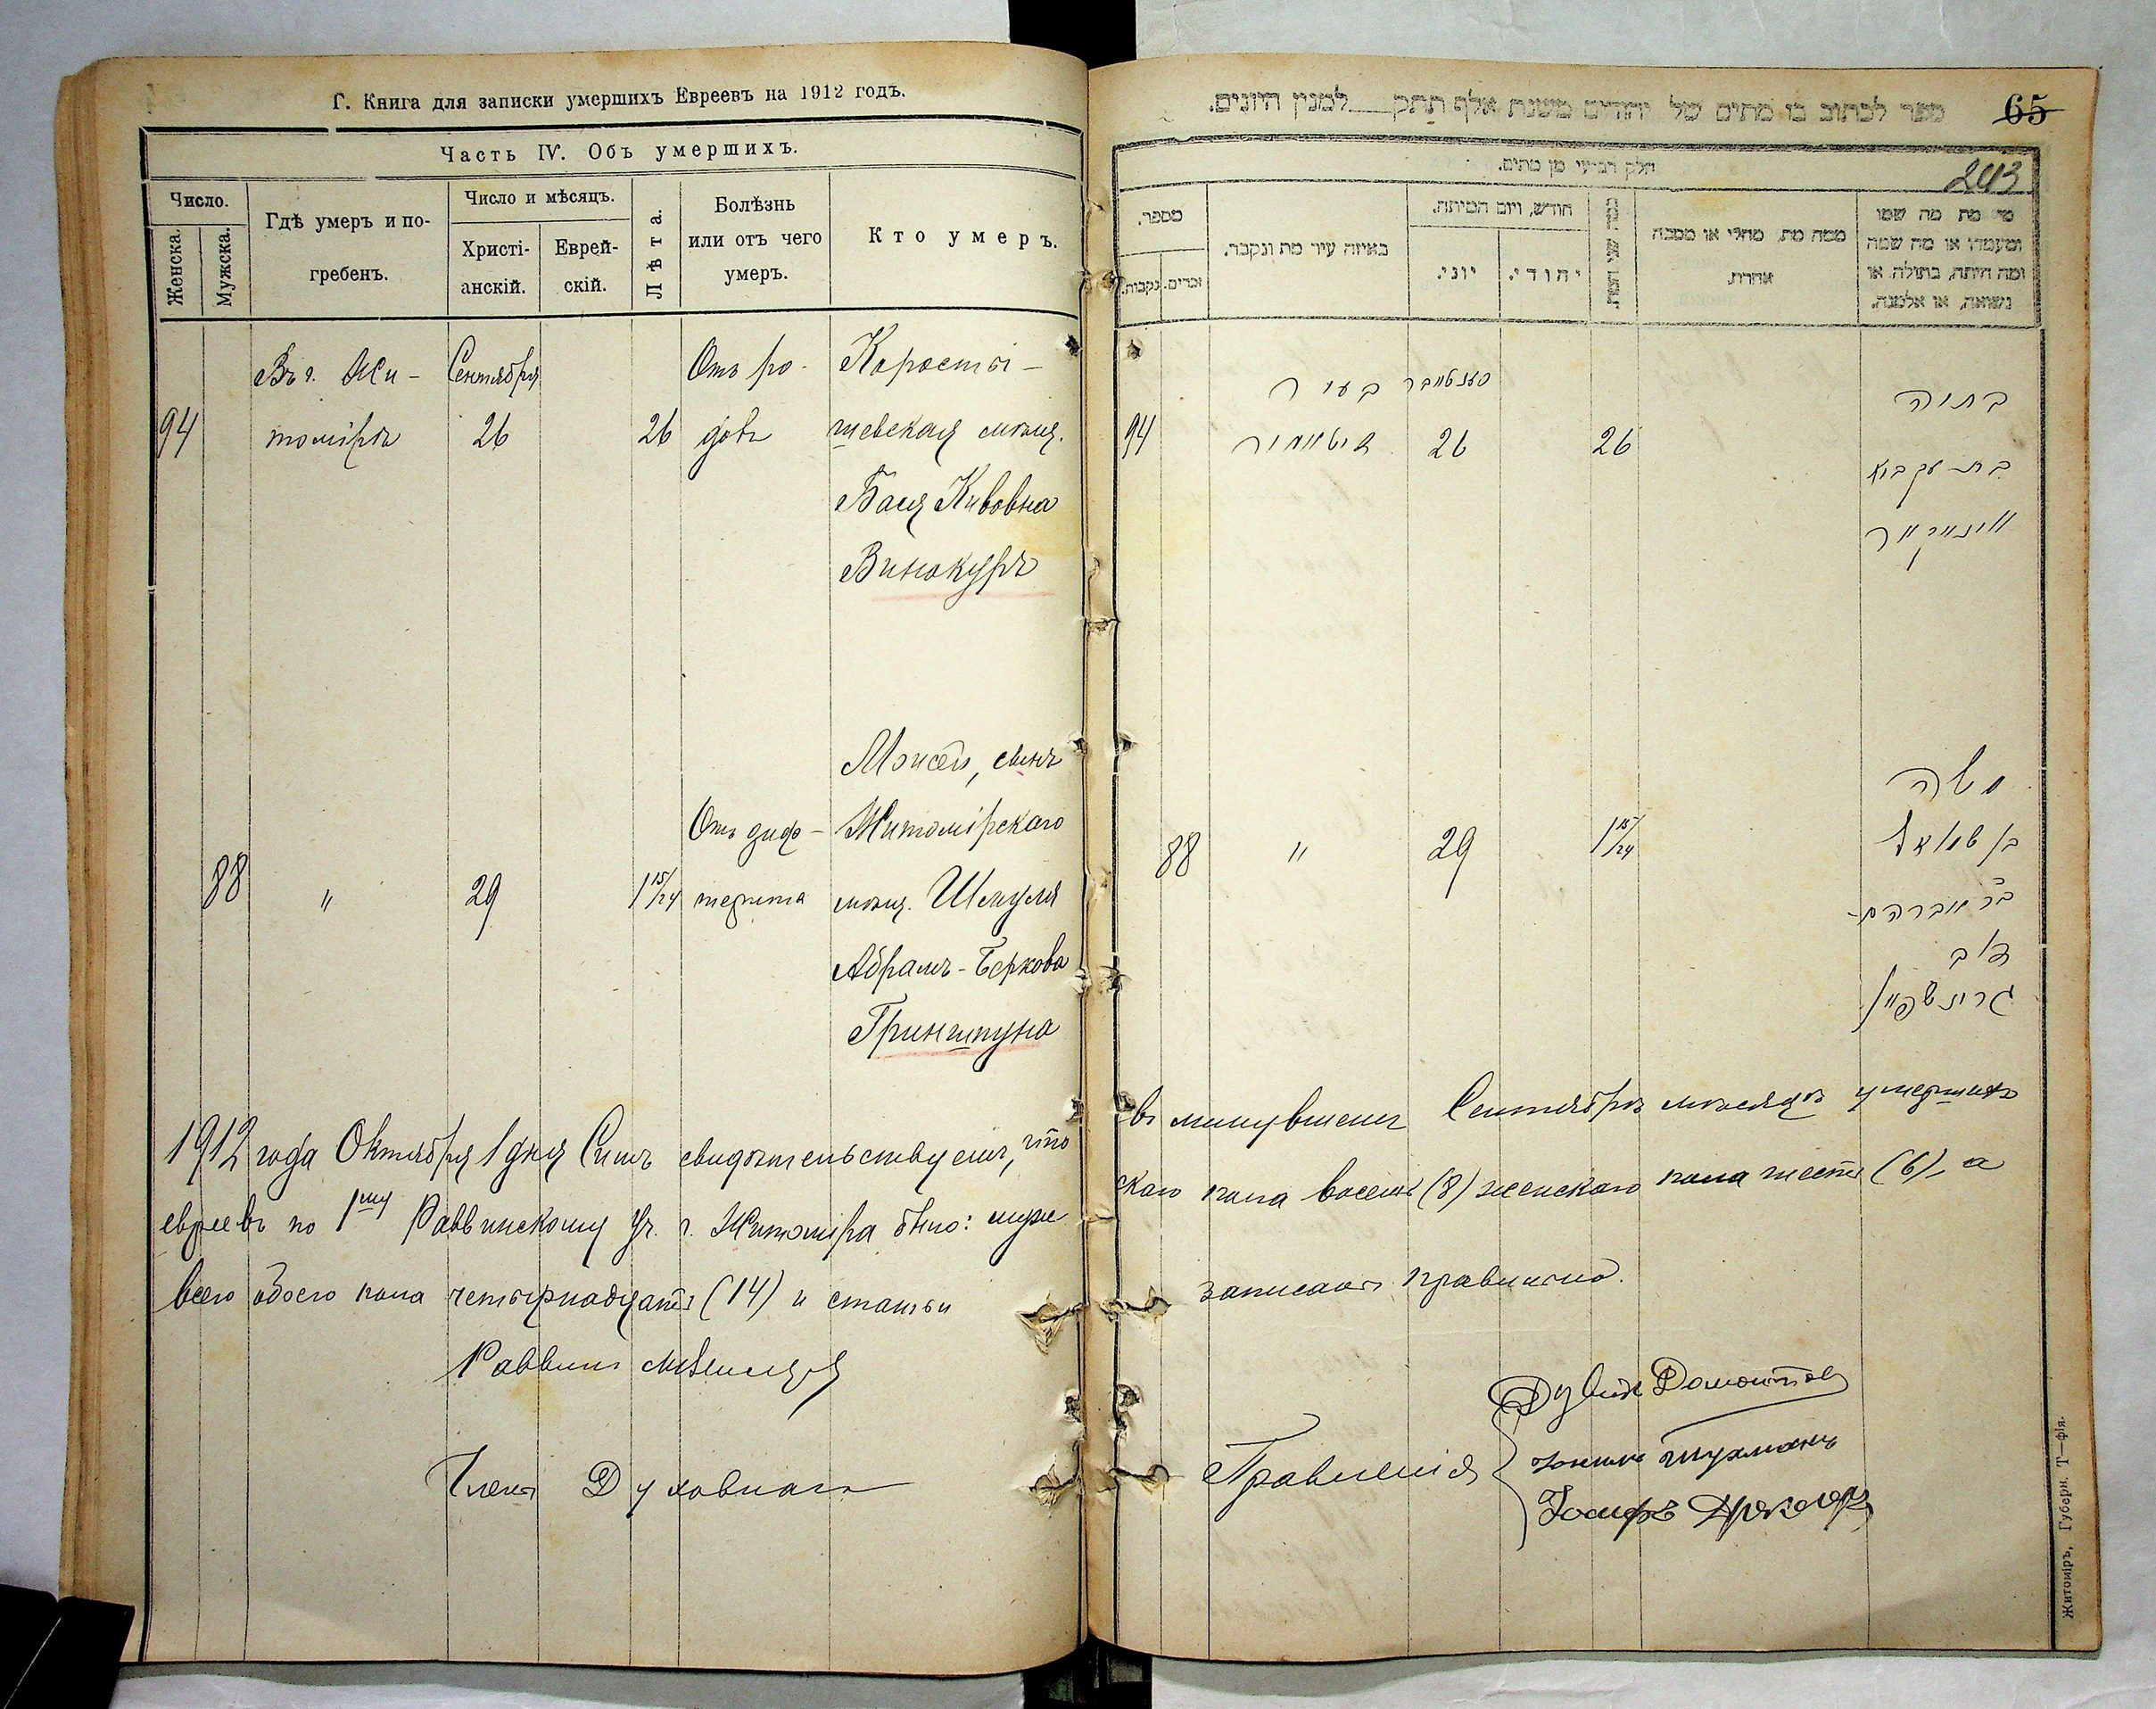 Г. Книга для записки умершихъ Евреевъ на 1912 годъ.
Часть IV. Объ умершихъ.
Число.
Женска.
Мужска.
Гдѣ умеръ и по-
гребенъ.
Число и мѣсяцъ.
Христі-
анскій.
Еврей-
скій.
Лѣта.
Болѣзнь
или отъ чего
умеръ.
Кто умеръ.
94
Въ г. Жи-
томірѣ
Сентября
26
26
Отъ ро-
довъ
Коросты-
шевская мѣщ.
Бася Кивовна
Винокуръ
88
"
29
1 15/24
Отъ диф-
терита
Мойсей, сынъ
Житомірскаго
мѣщ. Шмуля
Абрамъ-Беркова
Гриншпуна
1912 года Октября 1 дня Симъ свидѣтельствуемъ, что
евреевъ по 1му Раввинскому Уч. г. Житоміра было: муж
всего обоего пола четырнадцать (14) и статьи
Раввинъ
Члены Духовнаго
ספר לכתוב בו מתים של יהודים משנת אלף תתק למנין היונים.
65
חלק רביעי מן מתים.
243
מספר.
נקבות.
זכרים.
באיזה עיר מת ונקבר.
חודש, ויום המיתה.
יוני.
יהודי.
ממה מת, מחלי או מסבה
אחרת.
מי מת מה שמו
ומעמדו או מה שמה
ומה היתה, בתולה או
נשואה, או אלמנה.
94
בעיר
זיטאמיר
סענטיאבר
26
26
בתיה
בת עקבא
ווינאקור
88
"
29
1 15/24
משה
בן שמואל
בר אברהם
דוב
גרינשפון
въ минувшемъ Сентябрѣ мѣсяцѣ умершихъ
скаго пола восемь (8) женскаго пола шесть (6), а
записаны правильно.
Правленія
Іосифъ
Житоміръ, Губерн. Т—фія.